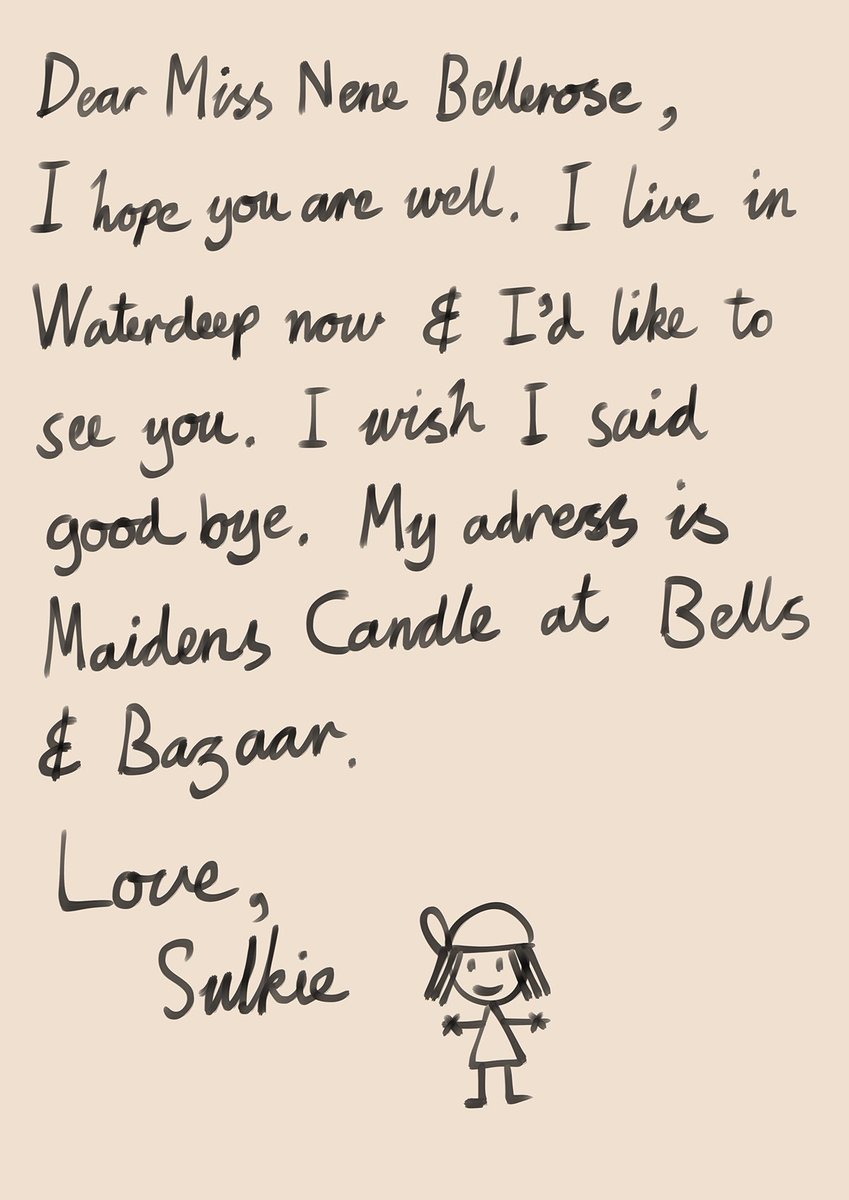 Dear Miss Nene Bellerose,
I hope you are well. I live in
Waterdeep now & I'd like to
see you. I wish I said
good bye. My adress is
Maidens Candle at Bells
& Bazaar.
Love,
Sulkie